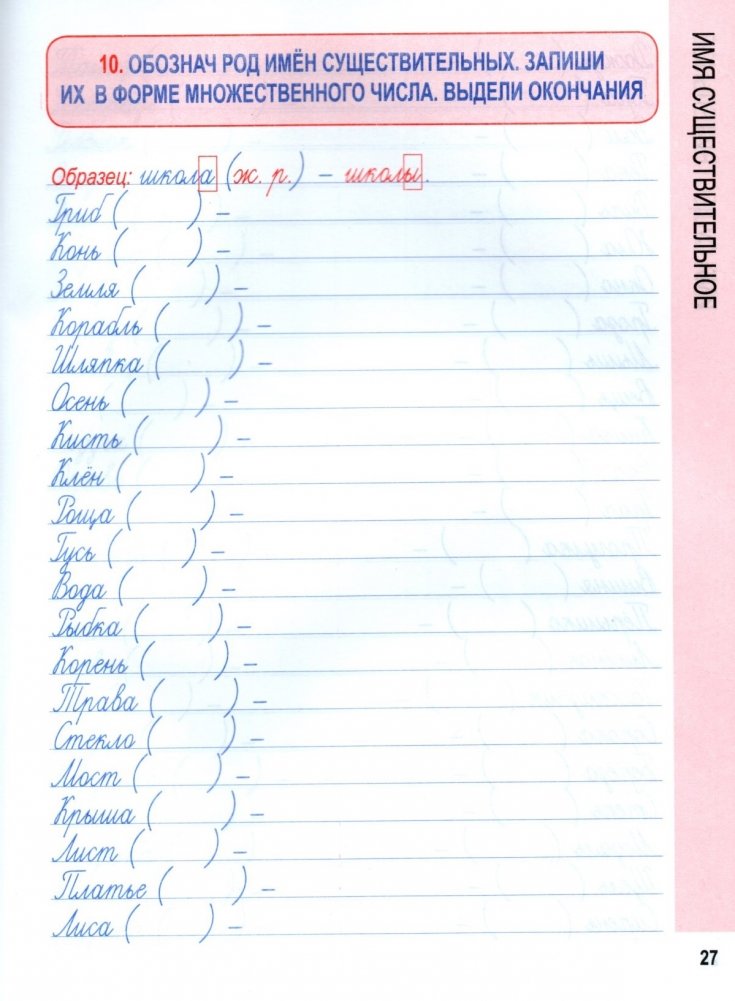 10. ОБОЗНАЧ РОД ИМЁН СУЩЕСТВИТЕЛЬНЫХ. ЗАПИШИ
ИХ В ФОРМЕ МНОЖЕСТВЕННОГО ЧИСЛА. ВЫДЕЛИ ОКОНЧАНИЯ
Образец: школа (ж. р.) – школы.
Гриб ( ) –
Конь ( ) –
Земля ( ) –
Корабль ( ) –
Шляпка ( ) –
Осень ( ) –
Кисть ( ) –
Клён ( ) –
Роща ( ) –
Гусь ( ) –
Вода ( ) –
Рыбка ( ) –
Корень ( ) –
Трава ( ) –
Стекло ( ) –
Мост ( ) –
Крыша ( ) –
Лист ( ) –
Платье ( ) –
Лиса ( ) –
ИМЯ СУЩЕСТВИТЕЛЬНОЕ
27